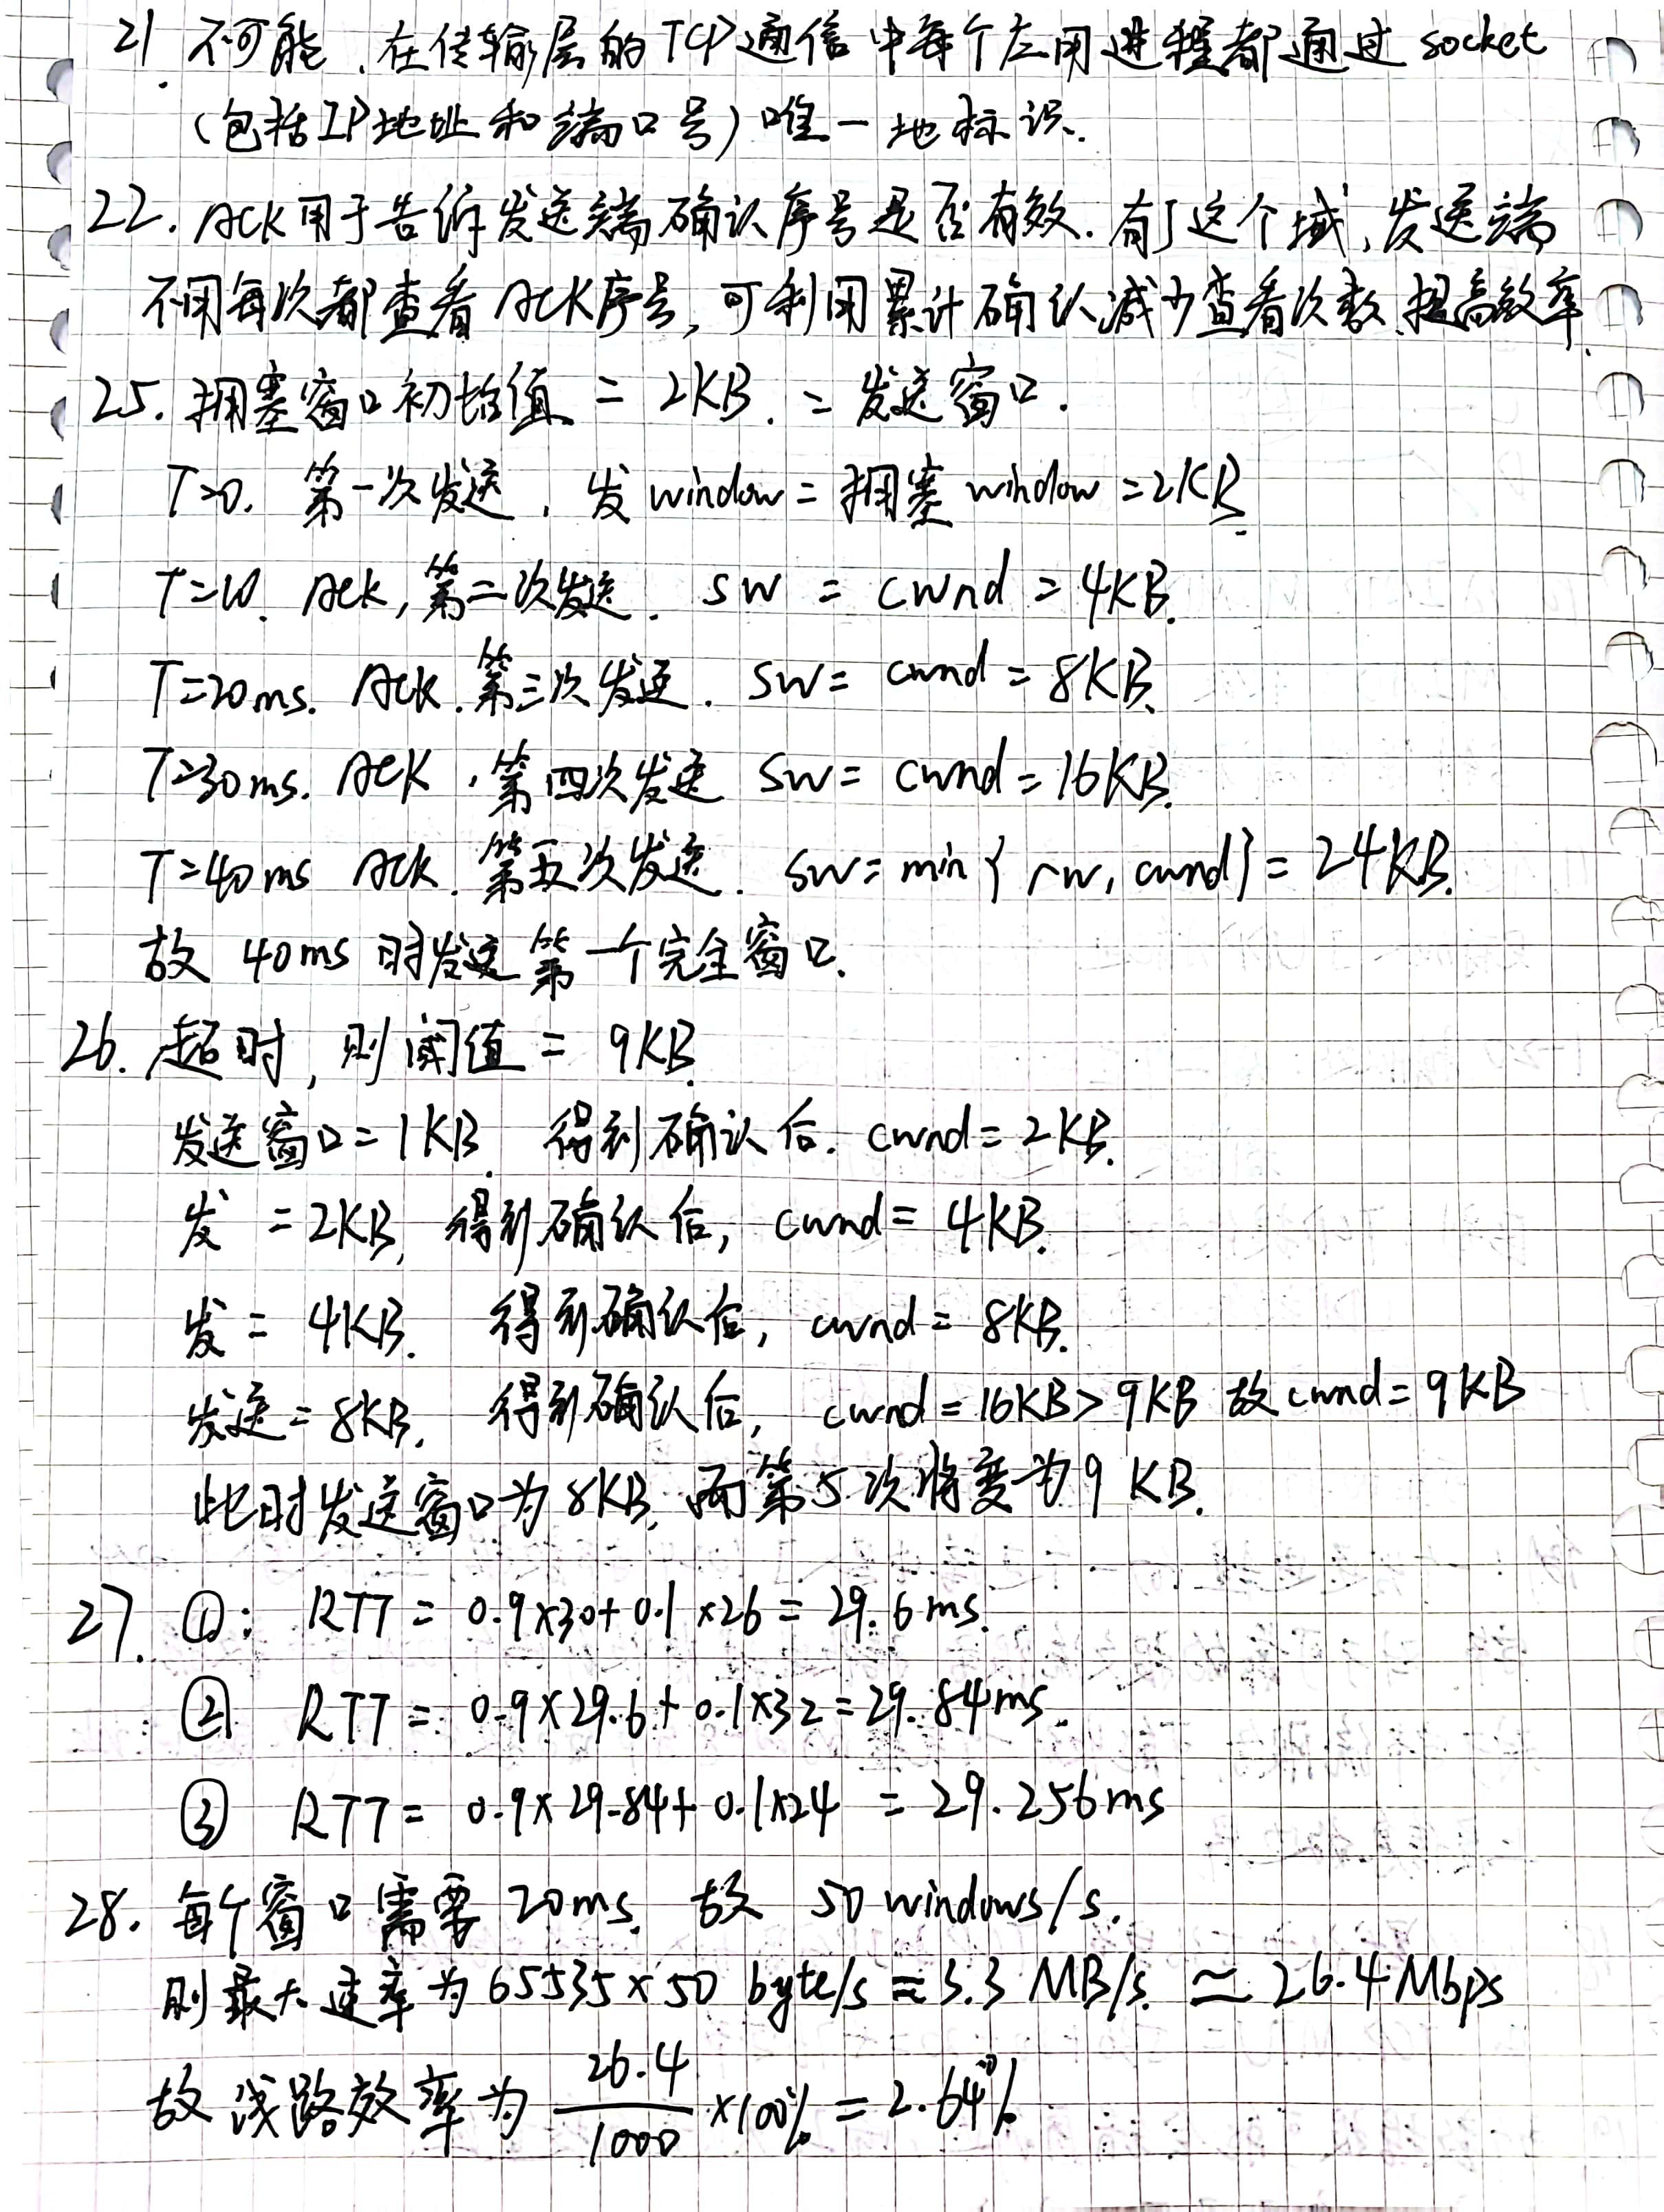 21. 不可能、在传输层的TCP通信中每个应用进程都通过 socket
(包括IP地址和端口号)唯一地标识.
22. ACK用于告诉发送端确认序号是否有效. 有了这个域, 发送端
不用每次都查看ACK序号, 可利用累计确认减少查看次数, 提高效率.
25. 拥塞窗口初始值 = 2KB. = 发送窗口.
T=0. 第一次发送, 发window = 拥塞 window = 2KB.
T=10. Ack, 第二次发送. SW = cwnd = 4KB.
T=20ms. Ack. 第三次发送. SW = cwnd = 8KB.
T=30ms. Ack, 第四次发送 SW = cwnd = 16KB.
T=40ms Ack. 第五次发送. SW = min{ rw, cwnd} = 24KB.
故 40ms 时发送第一个完全窗口.
26. 超时, 则阈值 = 9KB.
发送窗口 = 1KB. 得到确认后. cwnd = 2KB.
发 = 2KB, 得到确认后, cwnd = 4KB.
发 = 4KB. 得到确认后, cwnd = 8KB.
发送 = 8KB. 得到确认后, cwnd = 16KB > 9KB 故 cwnd = 9KB
此时发送窗口为8KB, 而第5次将变为9 KB.
27. ①: RTT = 0.9×30+0.1×26 = 29.6ms.
② RTT = 0.9×29.6+0.1×32 = 29.84ms.
③ RTT = 0.9×29.84+0.1×24 = 29.256ms
28. 每个窗口需要 20ms, 故 50 windows/s.
则最大速率为 65535×50 byte/s ≈ 3.3 MB/s. ≃ 26.4 Mbps
故线路效率为 26.4/1000 ×100% = 2.64%